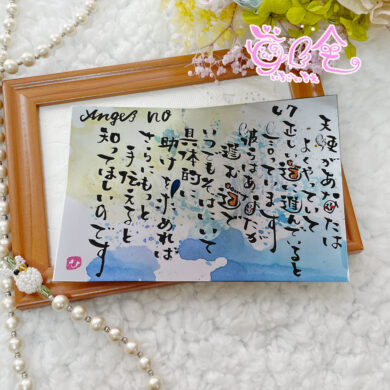 Anges no
47
天使があなたは
よくやっていて
正しい道に進んでいると
言っています
彼らはあなたが
進む道で
いつでもそばにいて
具体的に
助けを求めれば
さらにもっと
手伝えると
知ってほしいのです